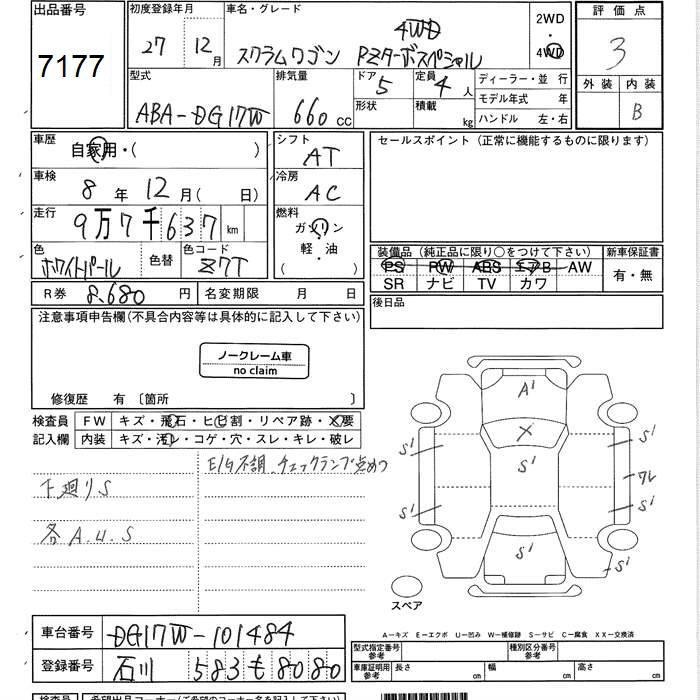 出品番号
7177
初度登録年月
27 年 12 月
車名・グレード
4WD
スクラムワゴン PZターボスペシャル
2WD
・
4WD
評価点
3
外装 内装
B
型式
ABA-DG17W
排気量
660 cc
ドア 5
形状
定員 4 人
積載 kg
ディーラー・並行
モデル年式 年
ハンドル 左・右
車歴
自家用・( )
車検
8 年 12 月( 日)
走行
9万7千637 km
色
ホワイトパール
色替
色コード
Z7T
シフト
AT
冷房
AC
燃料
ガソリン
軽・油
( )
セールスポイント (正常に機能するものに限ります)
装備品 (純正品に限り○をつけて下さい)
PS PW ABS エアB AW
SR ナビ TV カワ
新車保証書
有・無
R券 8,680 円
名変期限 月 日
後日品
注意事項申告欄(不具合内容等は具体的に記入して下さい)
ノークレーム車
no claim
修復歴 有 〔箇所 〕
検査員
記入欄
FW キズ・飛石・ヒビ割・リペア跡・X要
内装 キズ・汚レ・コゲ・穴・スレ・キレ・破レ
E/G不調、チェックランプ点めつ
下廻りS
各A.U.S
A1
X
S1
S1
S1
S1
S1
S1
ワレ
S1
S1
スペア
A-キズ E-エクボ U-凹み W-補修跡 S-サビ C-腐食 XX-交換済
車台番号 DG17W-101484
登録番号 石川 583 も 8080
型式指定番号
参考
種別区分番号
参考
車庫証明用
参考
長さ cm
幅 cm
高さ cm